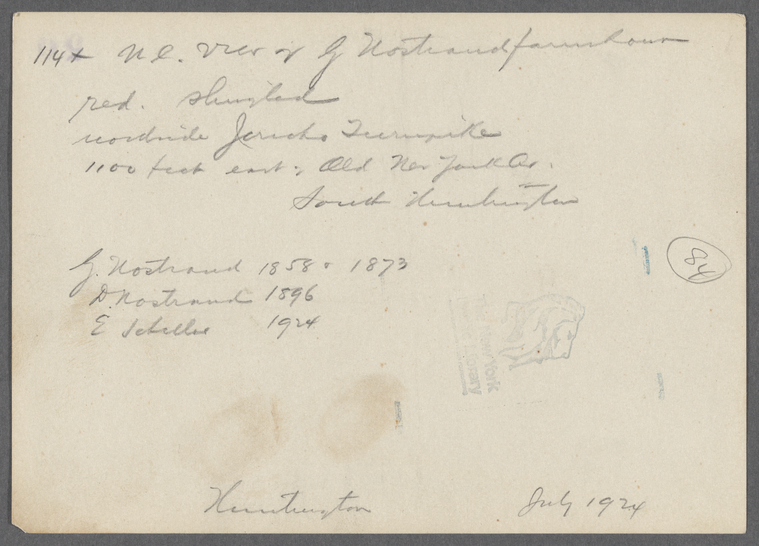 114+ N.E. View of G Nostrand farmhouse
red. shingled
roadside Jericho Turnpike
1100 feet east of Old New York Av.
South Huntington
G. Nostrand 1858 & 1873
D. Nostrand 1896
E Schiller 1924
84
New York
Library
Huntington July 1924